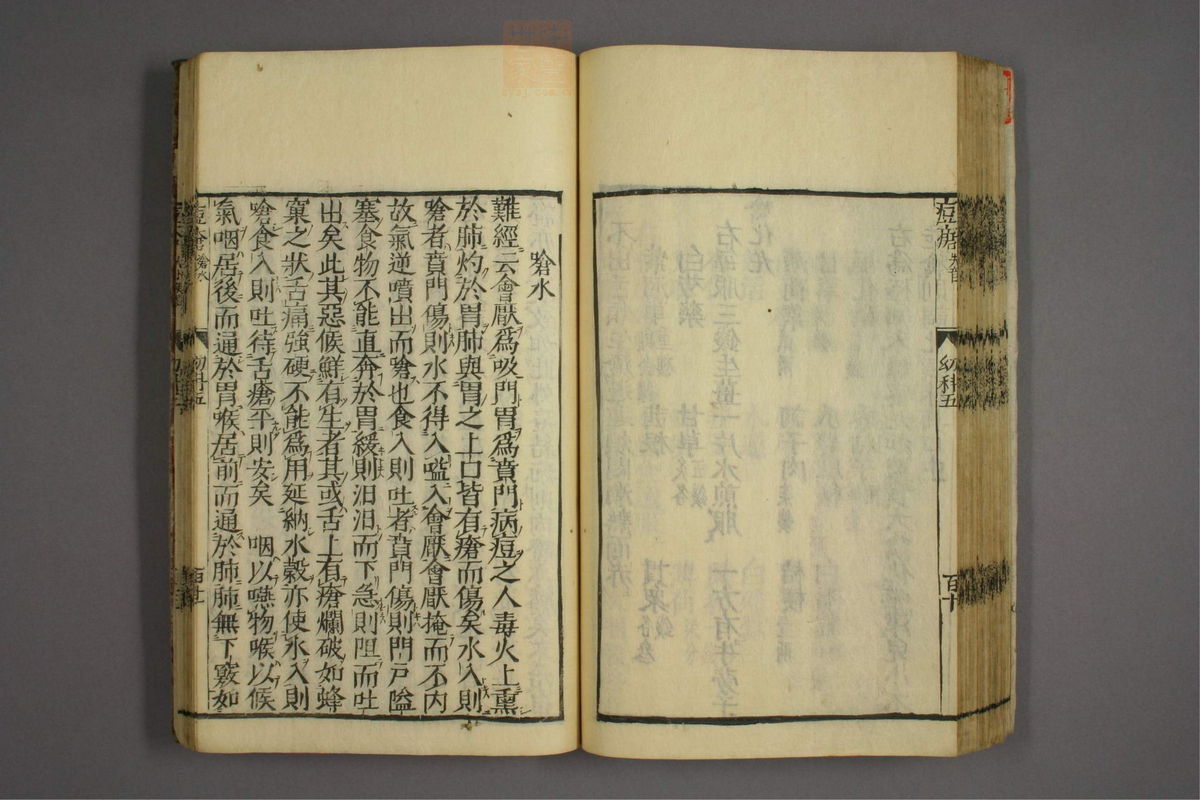 痘瘡
幼科五
百十
嗆水
難經云會厭爲吸門胃爲賁門病痘之人毒火上熏
於肺灼於胃肺與胃之上口皆有瘡而傷矣水入則
嗆者賁門傷則水不得入嗌入會厭會厭掩而不內
故氣逆噴出而嗆也食入則吐者賁門傷則門戸隘
塞食物不能直奔於胃緩則汨汨而下急則阻而吐
出矣此其惡候鮮有生者其或舌上有瘡爛破如蜂
窠之狀舌痛強硬不能爲用延納水穀亦使水入則
嗆食入則吐待舌瘡平則安矣 咽以嚥物喉以候
氣咽居後而通於胃喉居前而通於肺肺無下竅如